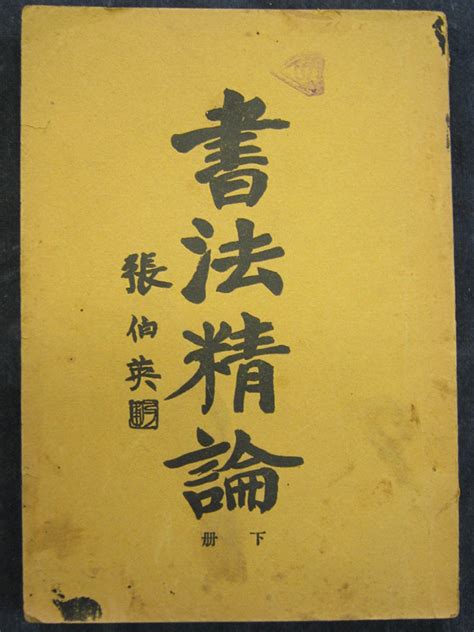 書法精論
張伯英
下册